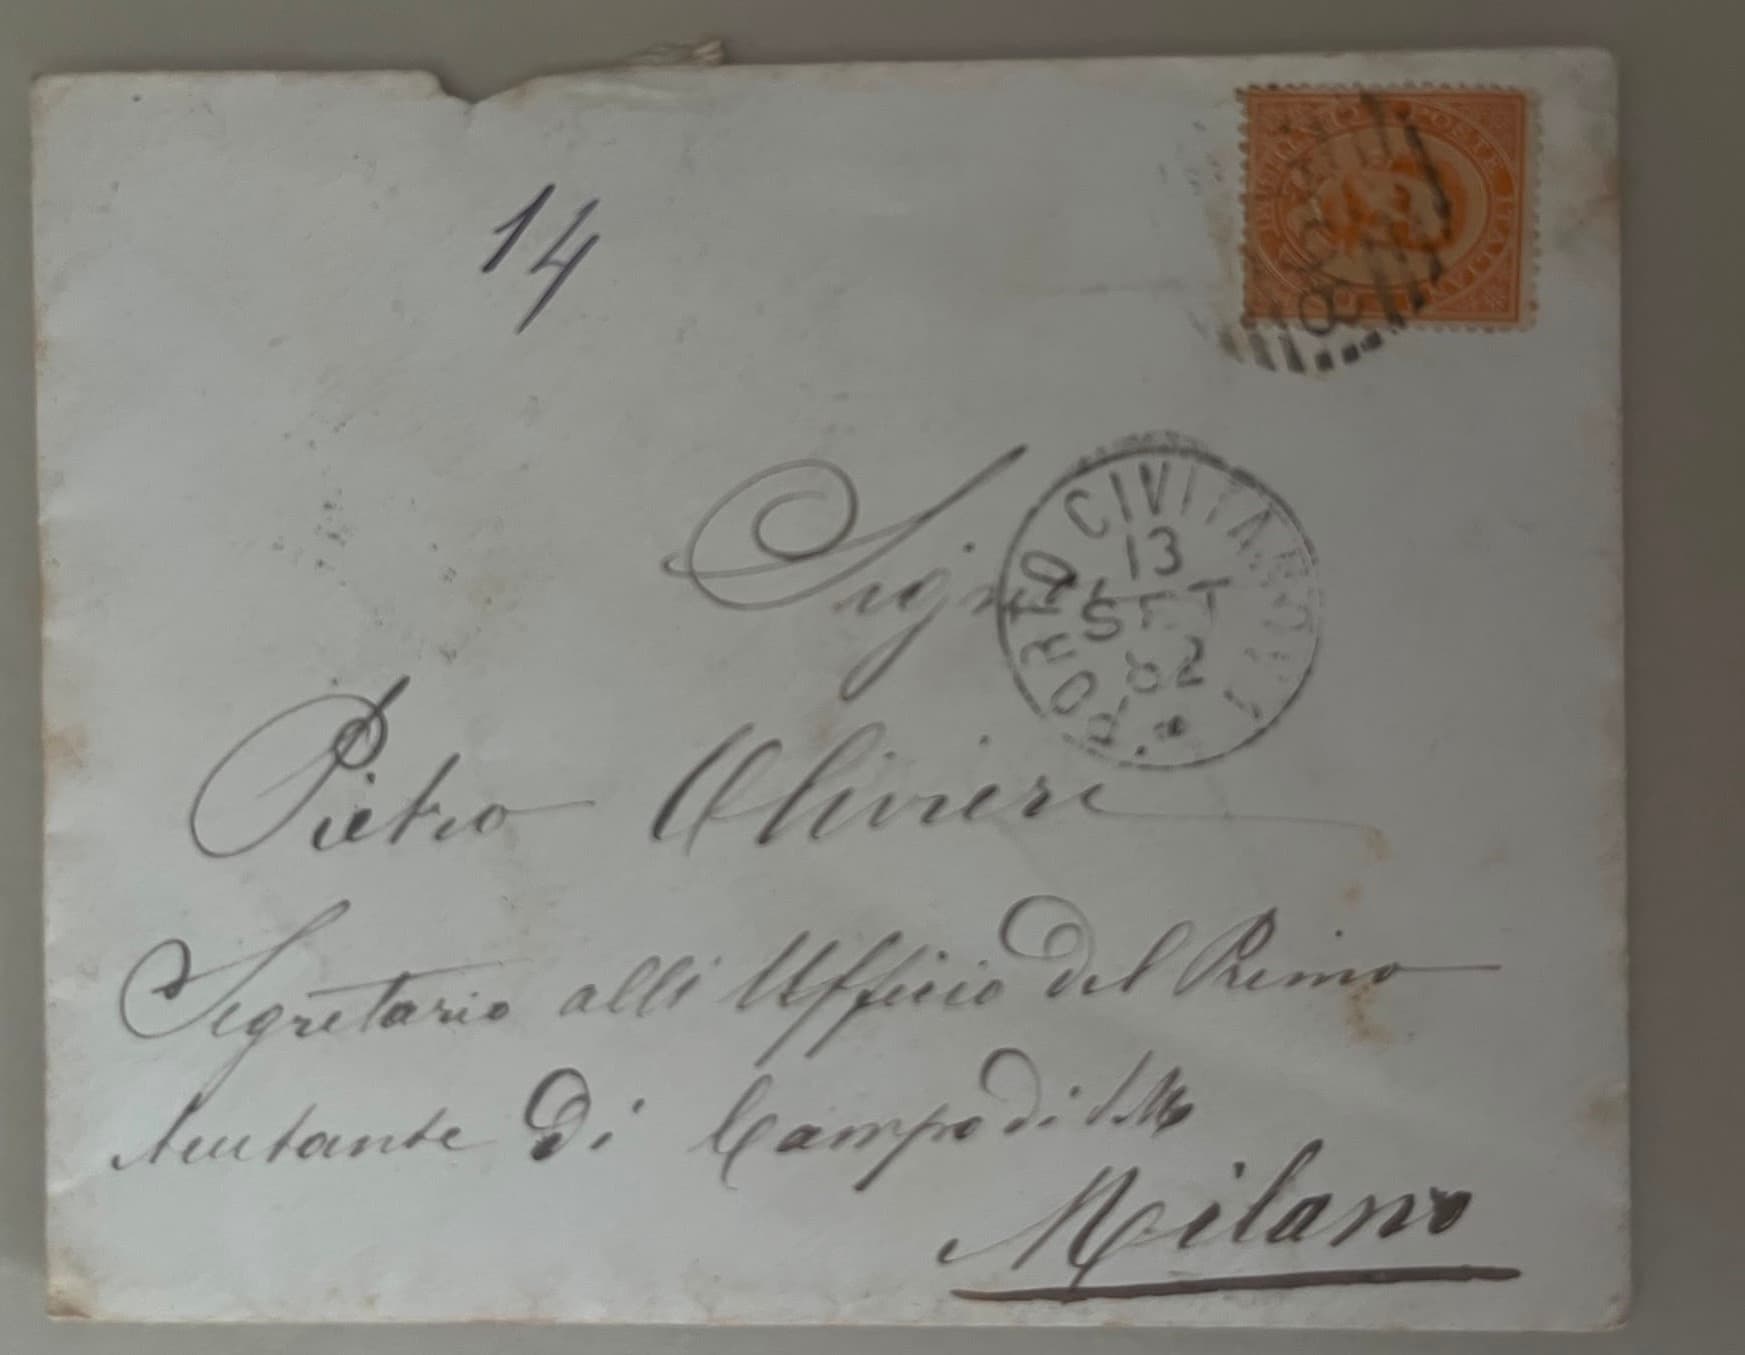 14
POSTE ITALIANE
Sigr
PORTO CIVITANOVA
13
SET
82
Pietro Olivieri
Segretario alli Ufficio del Primo
Aiutante Di Campo di S.M.
Milano